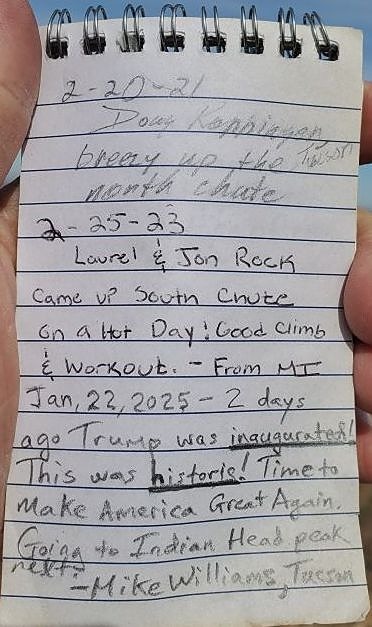 2-20-21
Doug
breezy up the Tucson
north chute
2-25-23
Laurel & Jon Rock
Came up South Chute
on a Hot Day! Good Climb
& Workout. - From MI
Jan, 22, 2025 - 2 days
ago Trump was inaugurated!
This was historic! Time to
Make America Great Again.
Going to Indian Head peak
next!
-Mike Williams, Tucson